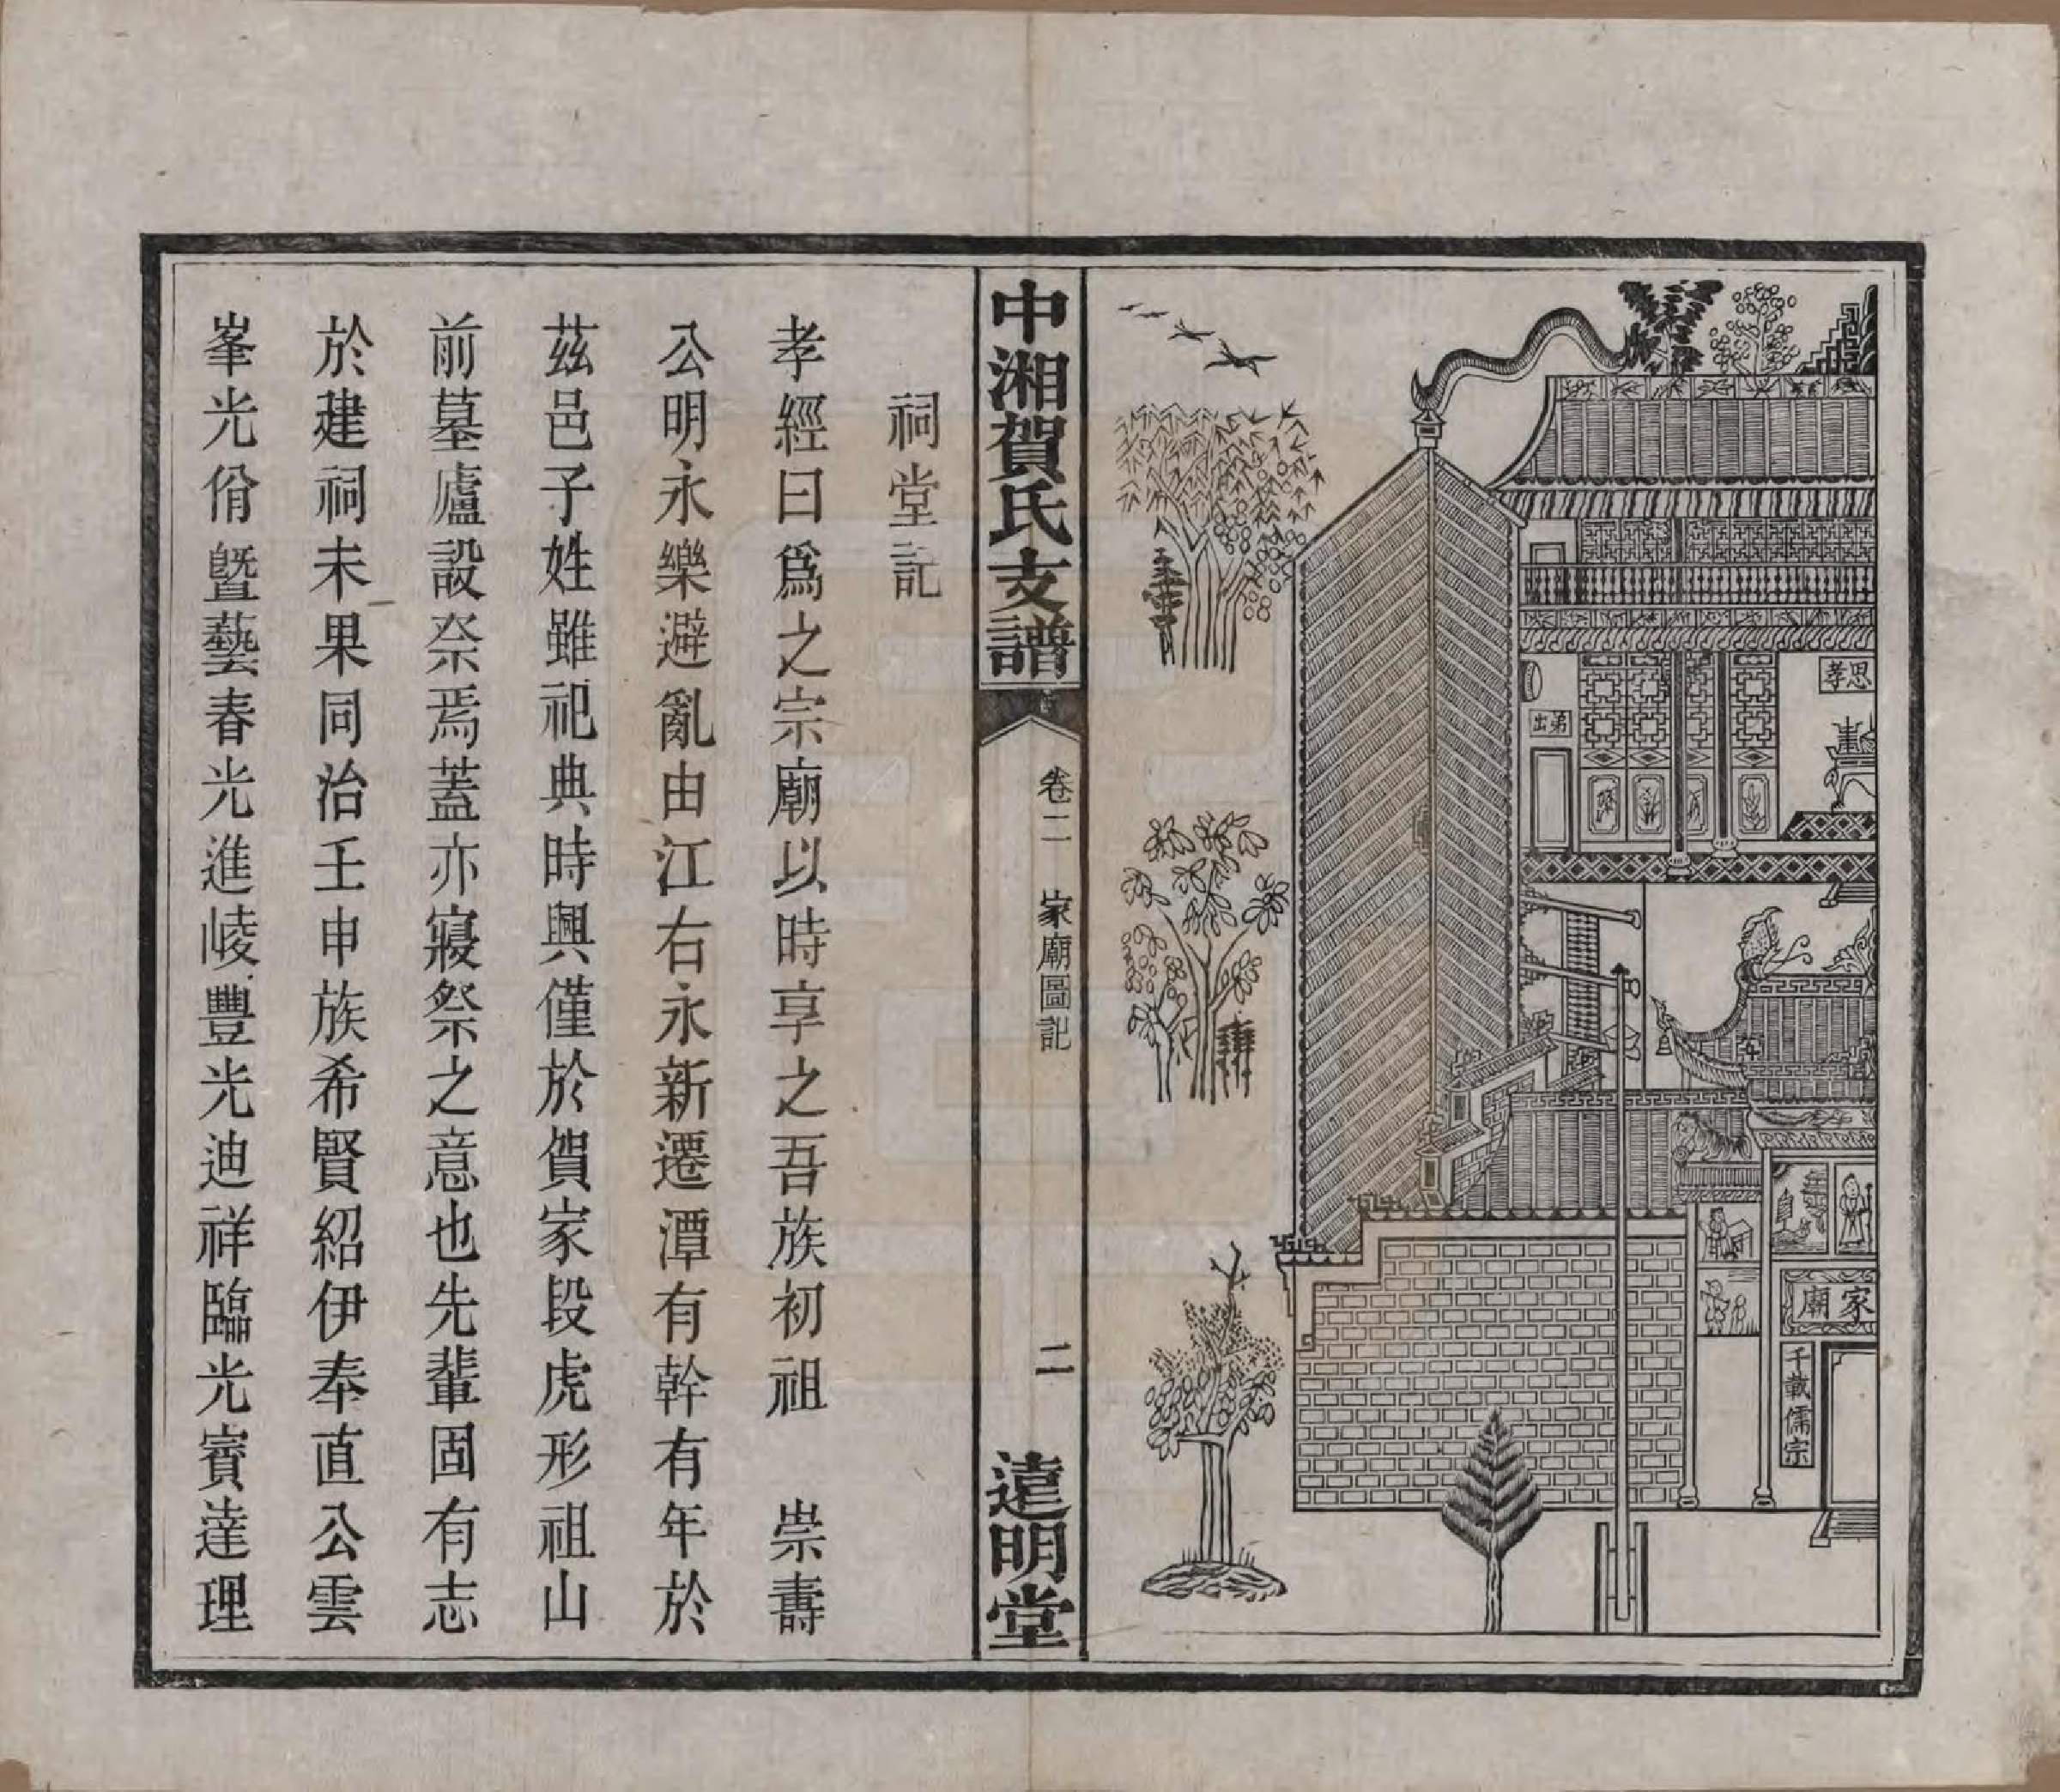 思孝
弟出
家廟
千載儒宗
中湘賀氏支譜
卷二　家廟圖記
二
遠明堂
祠堂記
孝經曰爲之宗廟以時享之吾族初祖　崇壽
公明永樂避亂由江右永新遷潭有幹有年於
茲邑子姓雖祀典時興僅於賀家段虎形祖山
前墓廬設祭焉蓋亦寢祭之意也先輩固有志
於建祠未果同治壬申族希賢紹伊奉直公雲
峯光佾暨藝春光進崚豐光迪祥臨光賓達理